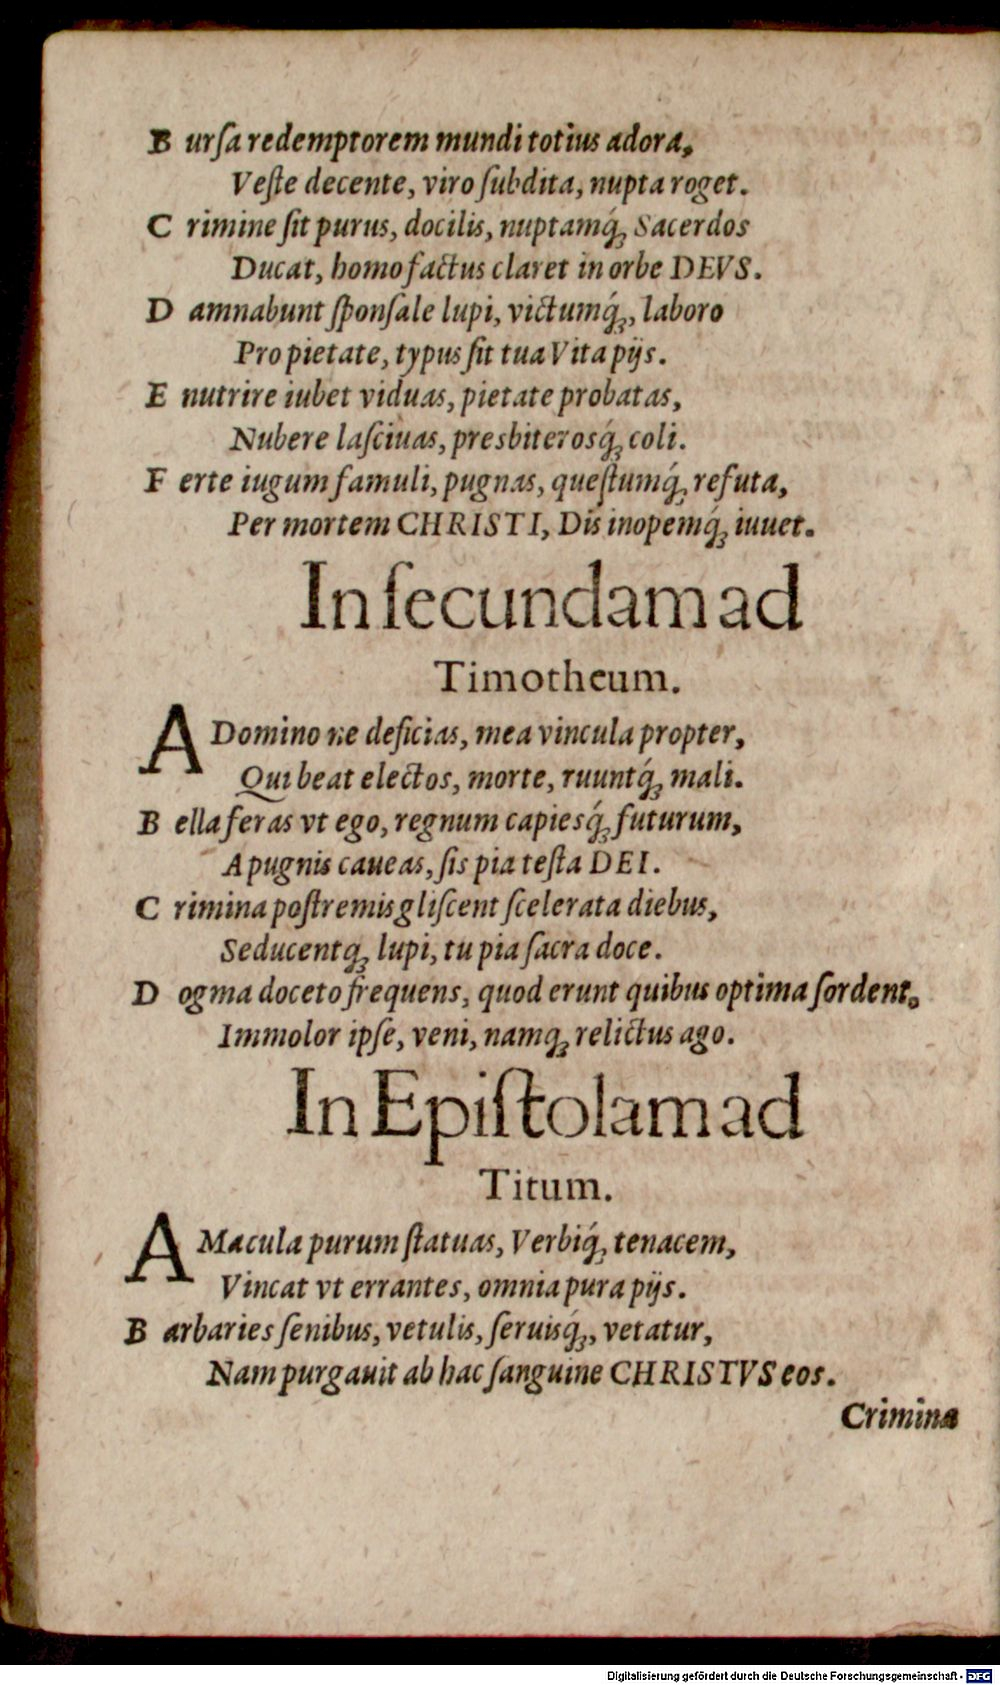 B urſa redemptorem mundi totius adora,
Veſte decente, viro ſubdita, nupta roget.
C rimine ſit purus, docilis, nuptamq́ꝫ Sacerdos
Ducat, homo factus claret in orbe DEVS.
D amnabunt ſponſale lupi, victumq́ꝫ, laboro
Pro pietate, typus ſit tua Vita pijs.
E nutrire iubet viduas, pietate probatas,
Nubere laſciuas, presbiterosq́ꝫ coli.
F erte iugum famuli, pugnas, queſtumq́ꝫ refuta,
Per mortem CHRISTI, Dis inopemq́ꝫ iuuet.
In ſecundam ad
Timotheum.
A Domino ne deficias, mea vincula propter,
Qui beat electos, morte, ruuntq́ꝫ mali.
B ella feras vt ego, regnum capiesq́ꝫ futurum,
A pugnis caueas, ſis pia teſta DEI.
C rimina poſtremis gliſcent ſcelerata diebus,
Seducentqꝫ lupi, tu pia ſacra doce.
D ogma doceto frequens, quod erunt quibus optima ſordent.
Immolor ipſe, veni, namqꝫ relictus ago.
In Epiſtolam ad
Titum.
A Macula purum ſtatuas, Verbiq́ꝫ tenacem,
Vincat vt errantes, omnia pura pijs.
B arbaries ſenibus, vetulis, ſeruisq́ꝫ, vetatur,
Nam purgauit ab hac ſanguine CHRISTVS eos.
Crimina
Digitalisierung gefördert durch die Deutsche Forschungsgemeinschaft - DFG